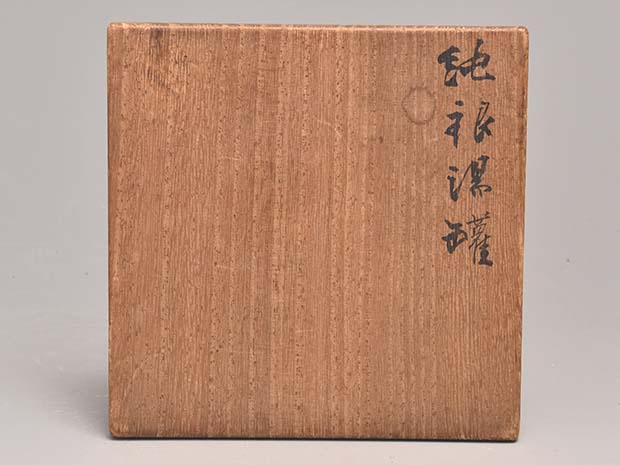 純銀湯罐